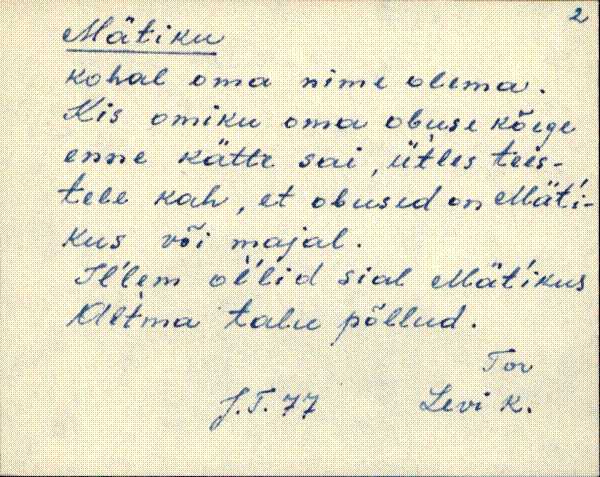 2
Mätiku
kohal oma nime olema.
Kis omiku oma obuse kõege
enne kätte sai, üt́les teis-
tele kah, et obused on Mät́i-
kus või majal.
Il´lem ol´lid sial Mät́ikus
Al´tma talu põllud.
Tor
J.T. 77 Levi k.